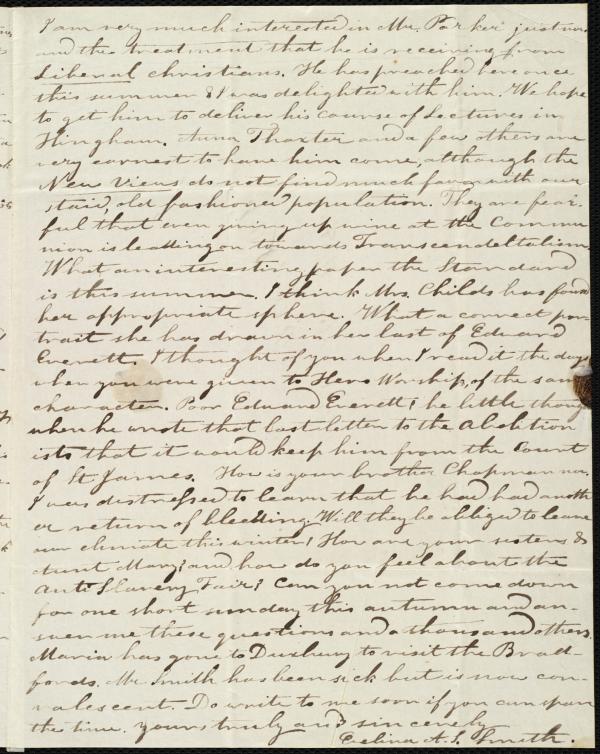 I am very much interested in Mr. Parker just now
and the treatment that he is receiving from
Liberal christians. He has preached here once
this summer & I was delighted with him. We hope
to get him to deliver his course of Lectures in
Hingham. Anna Thaxter and a few others are
very earnest to have him come, although the
New Views do not find much favor with our
staid, old fashioned population. They are fear-
ful that even giving up wine at the Commu-
nion is leading on towards Transcendeltalism
What an interesting paper the Standard
is this summer. I think Mrs. Childs has found
her appropriate sphere. What a correct por-
trait she has drawn in her last of Edward
Everett. I thought of you when I read it & the days
when you were given to Hero Worship, of the same
character. Poor Edward Everett! he little thought
when he wrote that last letter to the Abolition
ists that it would keep him from the Court
of St James. How is your brother Chapman now.
I was distressed to learn that he had had anoth
er return of bleeding. Will they be obliged to leave
our climate this winter? How are your sisters &
Aunt Mary? and how do you feel about the
Anti Slavery Fair? Can you not come down
for one short sunday this autumn and an-
swer me these questions and a thousand others.
Maria has gone to Duxbury to visit the Brad-
fords. Mr Smith has been sick but is now con-
valescent. Do write to me soon if you can spare
the time. yours truly and sincerely
Evelina A. S. Smith.